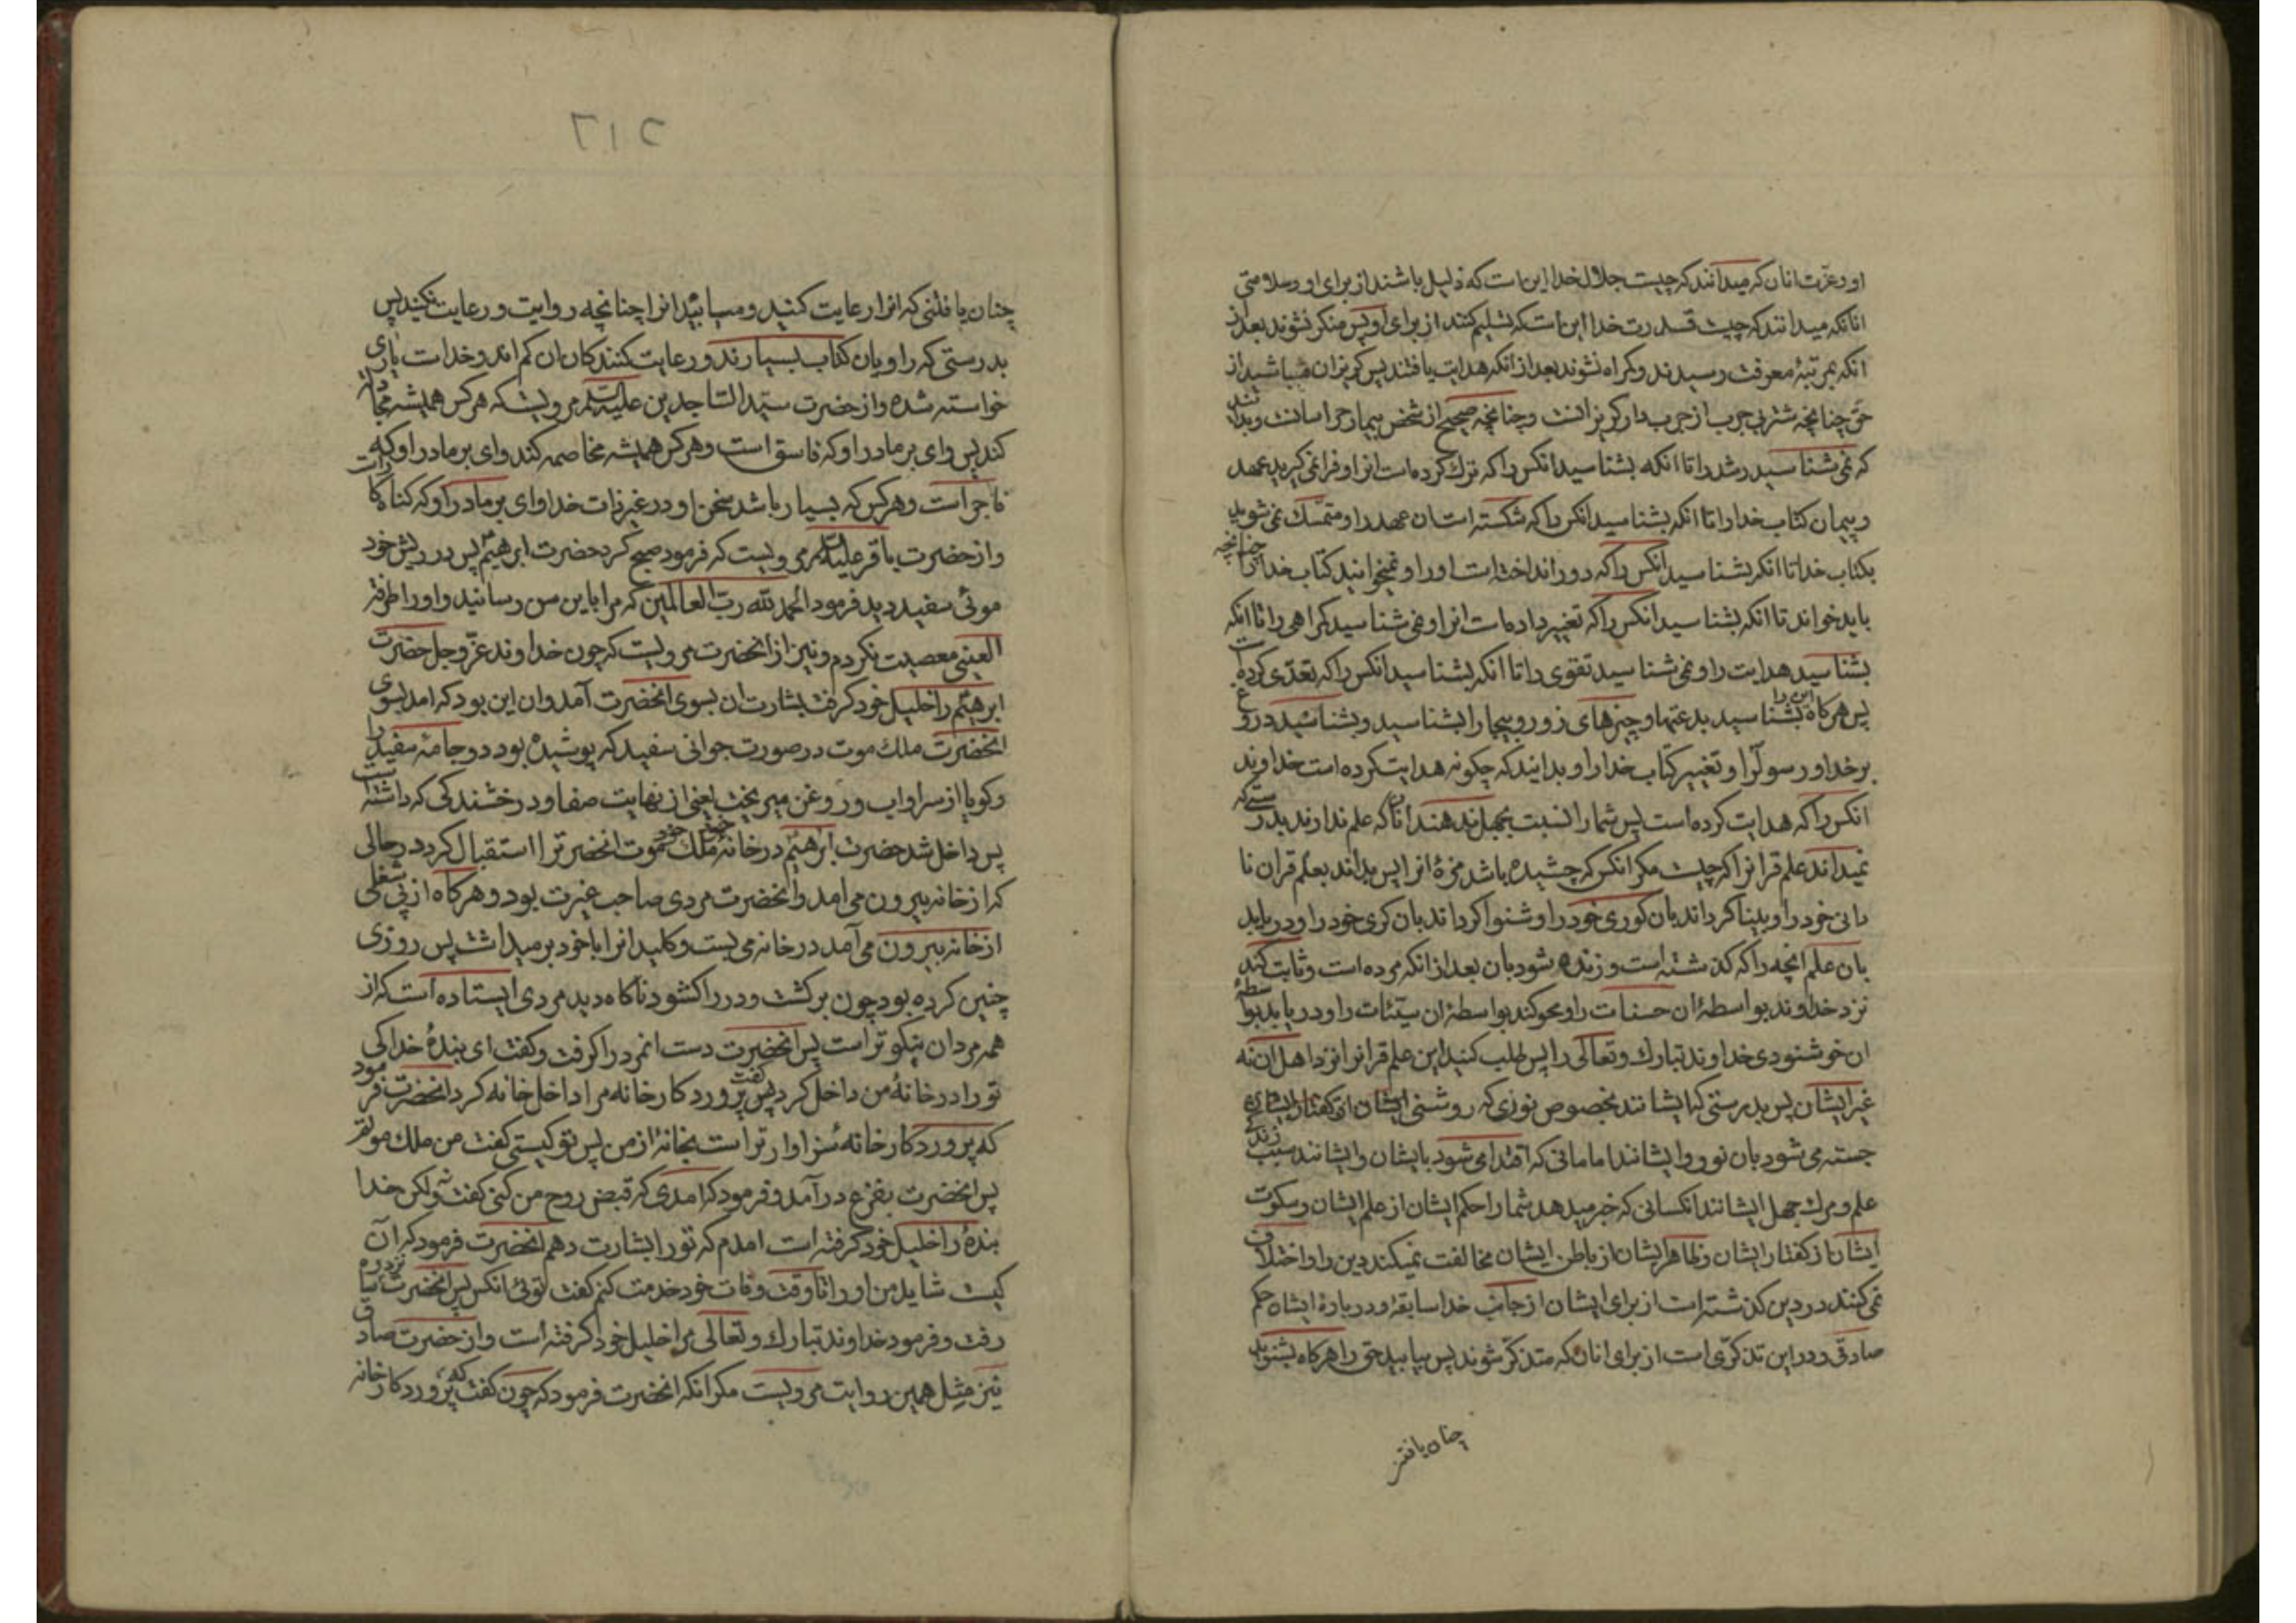 او و عزّت انان که میدانند که چیست جلال خدا این است که ذلیل باشند از برای او و سلامتی
انانکه میدانند که چیست قدرت خدا این است که تسلیم کنند از برای او پس منکر نشوند بعد از
انکه بمرتبهٔ معرفت رسیدند و کمراه نشوند بعد از انکه هدایت یافتند پس کریزان مباشید از
حق چنانچه شتر بی جرب از جرب دار کریزانست و چنانچه صحیح از شخص بیمار هراسانست و بدانید
که نمی شناسید رشد را تا انکه بشناسید انکس را که ترک کرده است انرا و فرا نمی کیرید عهد
و پیمان کتاب خدا را تا انکه بشناسید انکس را که شکسته است ان عهد را و متمسّک نمی شوید
بکتاب خدا تا انکه بشناسید انکس را که دور انداخته است او را و نمیخوانید کتاب خدا را چنانچه
باید خواند تا انکه بشناسید انکس را که تغییر داده است انرا و نمی شناسید کمراهی را تا انکه
بشناسید هدایت را و نمی شناسید تقوی را تا انکه بشناسید انکس را که تعدّی کرده است
پس هرکاه این را بشناسید بدعتها و چیزهای زور و بیجا را بشناسید و بشناسید دروغ
بر خدا و رسول را و تغییر کتاب خدا را و بدانید که چکونه هدایت کرده است خداوند
انکس را که هدایت کرده است پس شما را نسبت بجهل ندهند انان که علم ندارند بدرستی که
نمیداند علم قرانرا که چیست مکر انکس که چشیده باشد مزهٔ انرا پس بداند بعلم قران نا
دانی خود را و بینا کرداند بان کوری خود را و شنوا کرداند بان کری خود را و دریابد
بان علم انچه را که کذشته است و زنده شود بان بعد از انکه مرده است و ثابت کند
نزد خداوند بواسطهٔ ان حسنات را و محو کند بواسطهٔ ان سیّئات را و دریابد بواسطهٔ
ان خوشنودی خداوند تبارک و تعالی را پس طلب کنید این علم قرانرا نزد اهل ان نه
غیر ایشان پس بدرستی که ایشانند مخصوص نوری که روشنی
جسته می شود بان نور و ایشانند امامانی که اقتدا می شود بایشان و ایشانند سبب زندکی
علم و مرک جهل ایشانند انکسانی که خبر میدهد شما را حکم ایشان از علم ایشان و سکوت
ایشان از کفتار ایشان و ظاهر ایشان از باطن ایشان مخالفت نمیکنند دین را و اختلاف
نمی کنند در دین کذشته است از برای ایشان از جانب خدا سابقه و در بارهٔ ایشان حکم
صادق و در این تذکری است از برای انان که متذکّر شوند پس بیابید حق را هرکاه بشنوید
چنان یافتنی
۲۱۶
چنان یافتنی که انرا رعایت کنید و میابید انرا چنانچه روایت و رعایت نکنید پس
بدرستی که راویان کتاب بسیارند و رعایت کنندکان ان کم اند و خداست یاری
خواسته شده و از حضرت سیّد الساجدین علیه السلم مرویست که هرکس همیشه مجادله
کند پس وای بر مادر او که فاسق است و هرکس همیشه مخاصمه کند وای بر مادر او که
فاجر است و هرکس که بسیار باشد سخن او در غیر ذات خدا وای بر مادر او که کناه کار است
و از حضرت باقر علیه السلم مرویست که فرمود صبح کرد حضرت ابرهیم پس در ریش خود
موئی سفید دید فرمود الحمد لله ربّ العالمین که مرا باین سن رسانید و او را طرفة
العینی معصیت نکردم و نیز از انحضرت مرویست که چون خداوند عزّ و جل حضرت
ابرهیم را خلیل خود کرفت بشارت ان بسوی انحضرت آمد و ان این بود که امد بسوی
انحضرت ملک موت در صورت جوانی سفید که پوشیده بود دو جامهٔ سفید را
و کویا از سر او اب و روغن میریخت یعنی از نهایت صفا و درخشندکی که داشته است
پس داخل شد حضرت ابرهیم در خانهٔ خود ملک موت انحضرترا استقبال کرد در حالی
که از خانه بیرون می امد و انحضرت مردی صاحب غیرت بود و هرکاه از پی شغلی
از خانه بیرون می آمد در خانه می بست و کلید انرا با خود بر میداشت پس روزی
چنین کرده بود چون برکشت و در را کشود ناکاه دید مردی ایستاده است که از
همه مردان نیکوتر است پس انحضرت دست انمرد را کرفت و کفت ای بندهٔ خدا کی
تو را در خانهٔ من داخل کرد پس کفت پروردکار خانه مرا داخل خانه کرد انحضرت فرمود
که پروردکار خانه سزاوارتر است بخانه از من پس تو کیستی کفت من ملک موتم
پس انحضرت بفزع درآمد و فرمود که امدی که قبض روح من کنی کفت نه و لکن خدا
بندهٔ را خلیل خود کرفته است امدم که تو را بشارت دهم انحضرت فرمود که آن
کیست شاید من او را تا وقت وفات خود خدمت کنم کفت توئی انکس پس انحضرت نزد ساره
رفت و فرمود خداوند تبارک و تعالی مرا خلیل خود کرفته است و از حضرت صادق
نیز مثل همین روایت مرویست مکر انکه انحضرت فرمود که چون کفت که پروردکار خانه